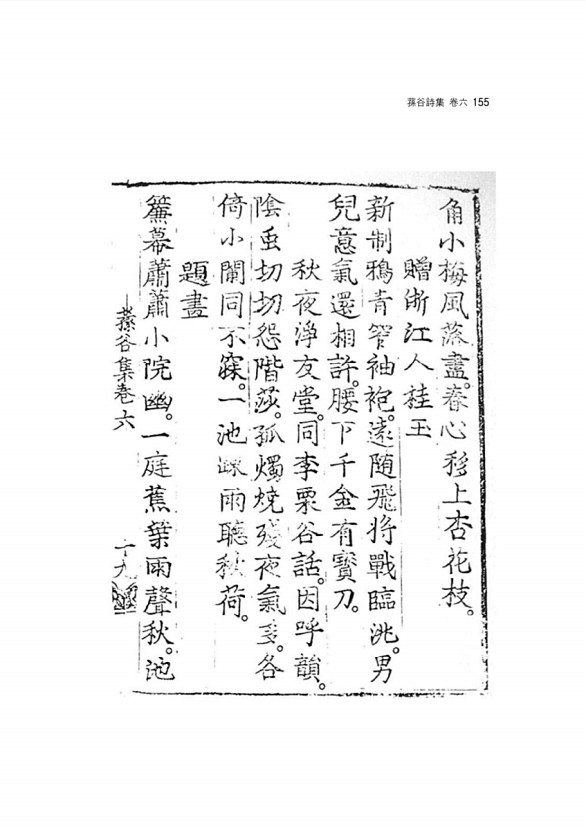 蓀谷詩集 卷六 155
角小梅風落盡。春心移上杏花枝。
贈浙江人桂玉
新制鴉青窄袖袍。遠隨飛將戰臨洮。男
兒意氣還相許。腰下千金有寶刀。
秋夜淨友堂。同李栗谷話。因呼韻。
陰虫切切怨階莎。孤燭燒殘夜氣多。各
倚小闌同不寐。一池踈雨聽秋荷。
題畫
簾幕蕭蕭小院幽。一庭蕉葉雨聲秋。池
蓀谷集卷六
十九